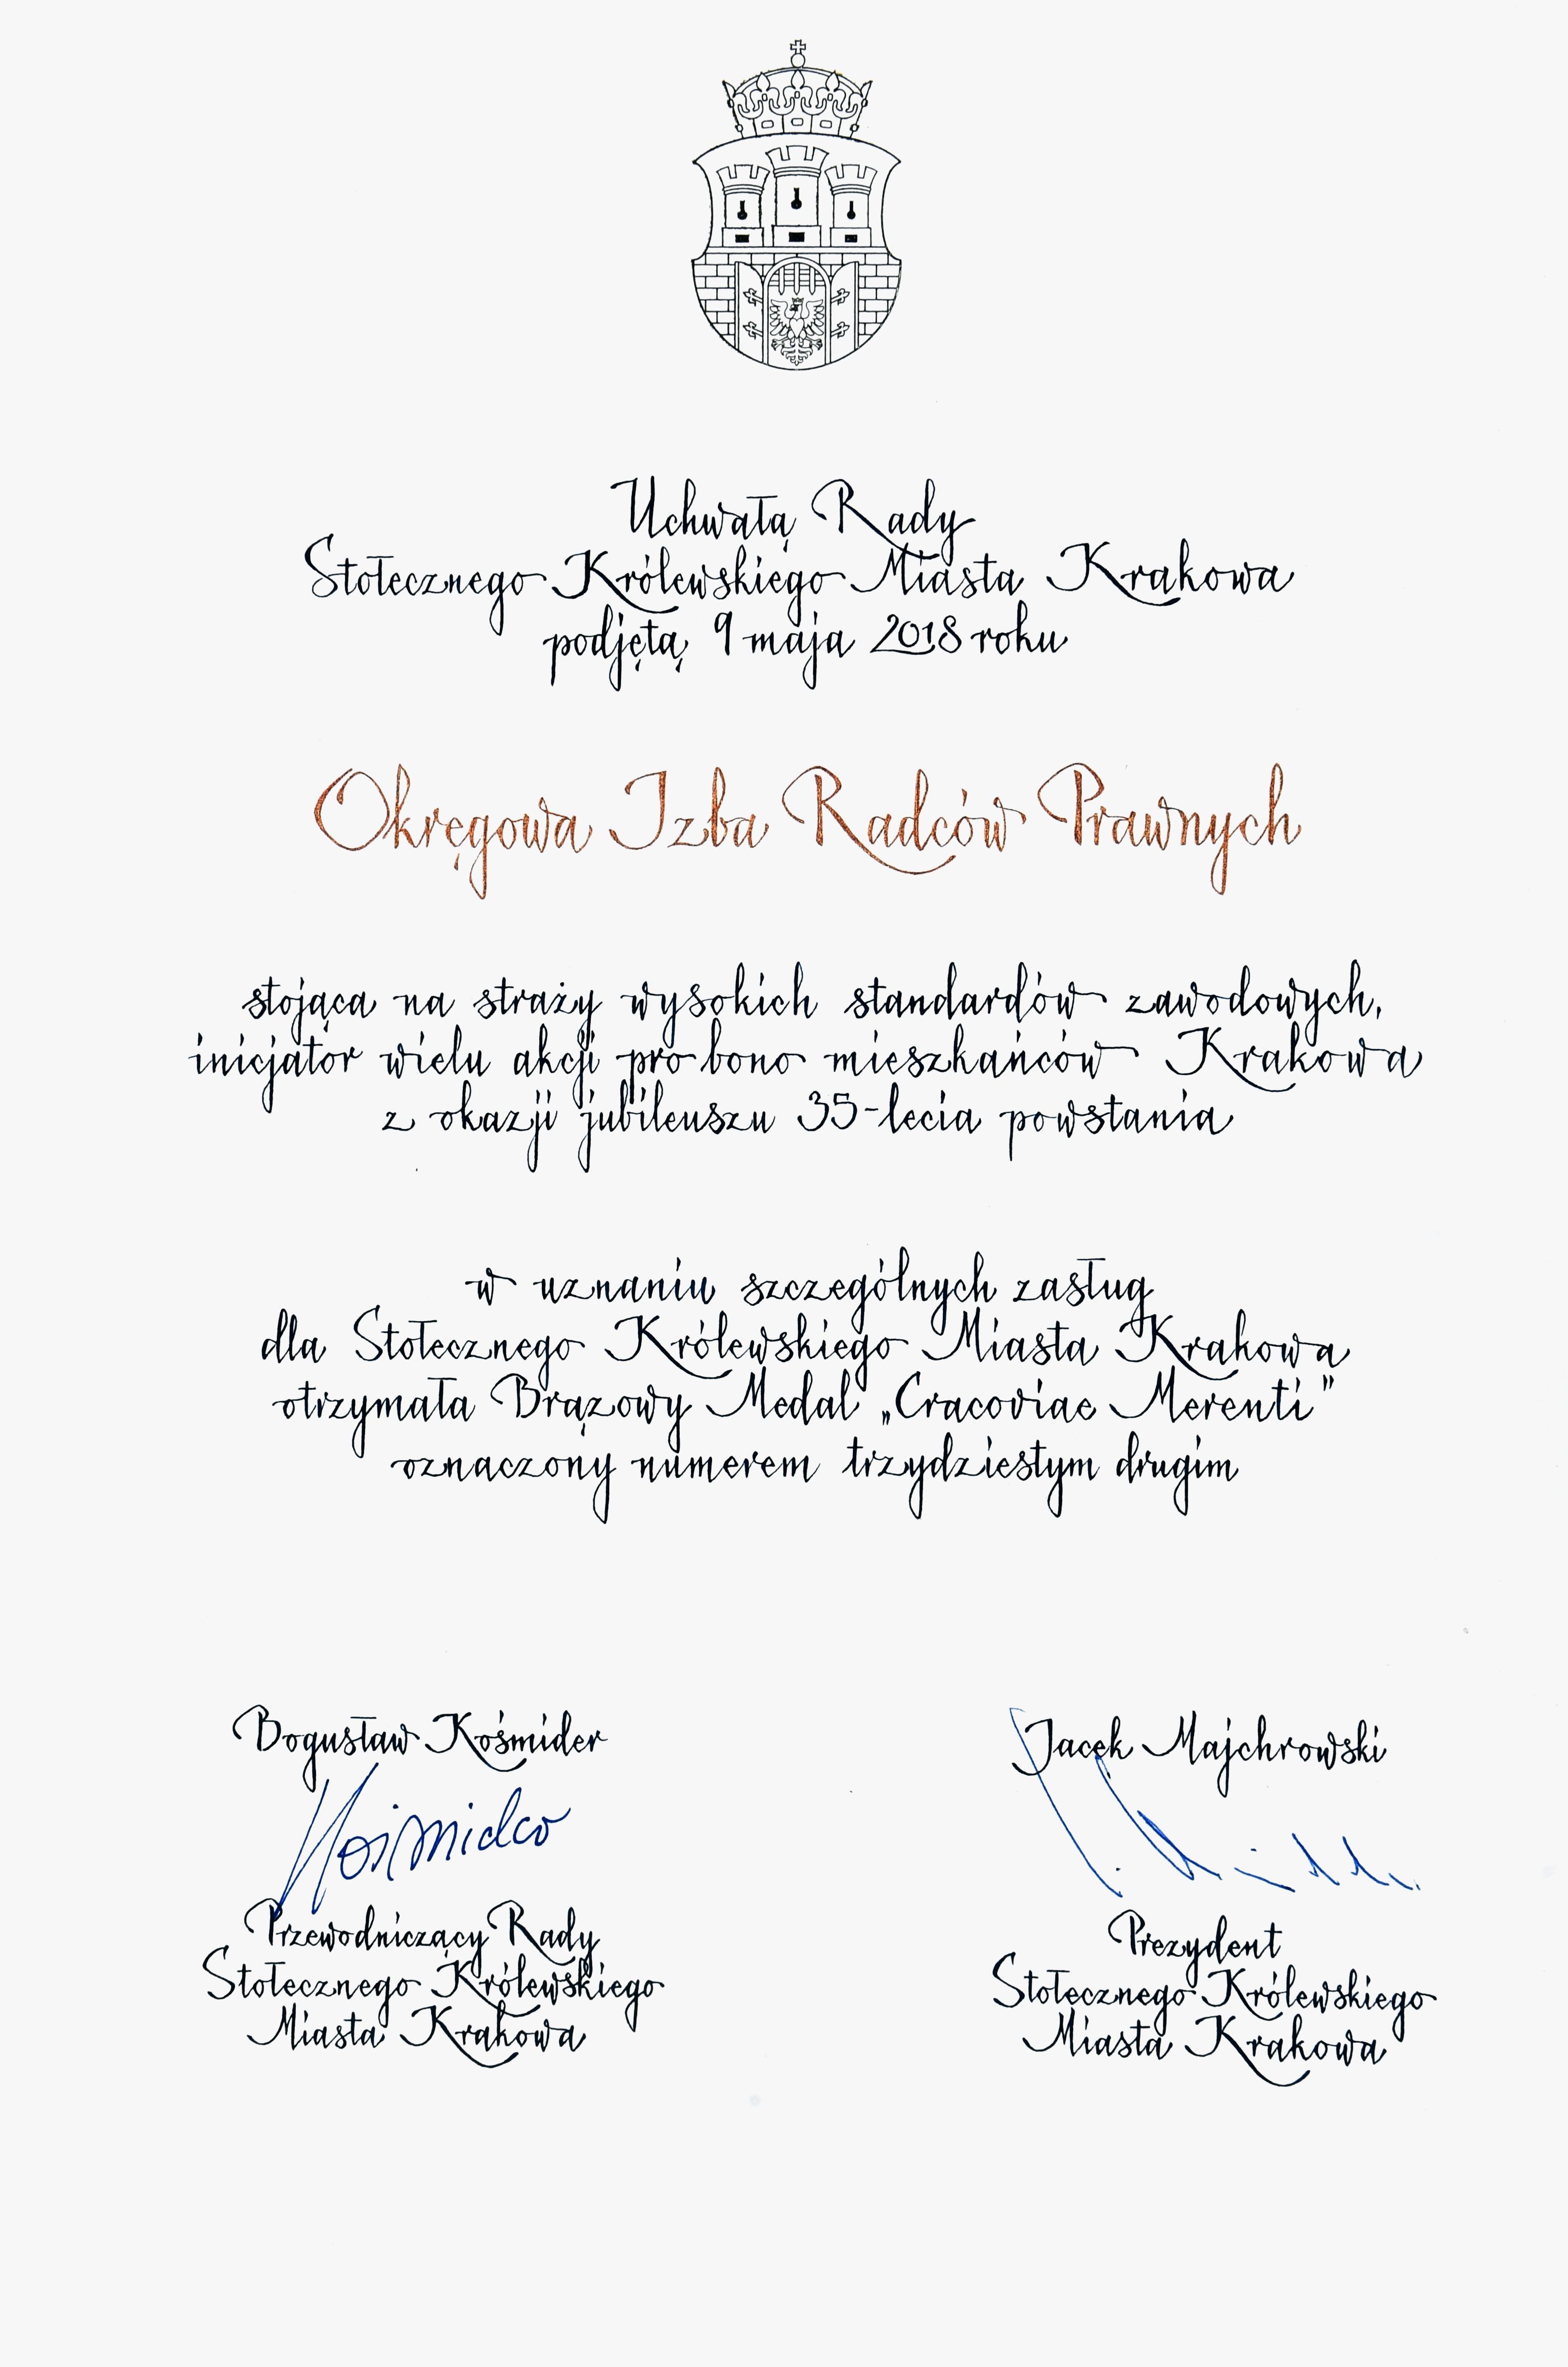 Uchwałą Rady
Stołecznego Królewskiego Miasta Krakowa
podjętą 9 maja 2018 roku
Okręgowa Izba Radców Prawnych
stojąca na straży wysokich standardów zawodowych,
inicjator wielu akcji pro bono mieszkańców Krakowa
z okazji jubileuszu 35-lecia powstania
w uznaniu szczególnych zasług
dla Stołecznego Królewskiego Miasta Krakowa
otrzymała Brązowy Medal „Cracoviae Merenti”
oznaczony numerem trzydziestym drugim
Bogusław Kośmider
Przewodniczący Rady
Stołecznego Królewskiego
Miasta Krakowa
Jacek Majchrowski
Prezydent
Stołecznego Królewskiego
Miasta Krakowa